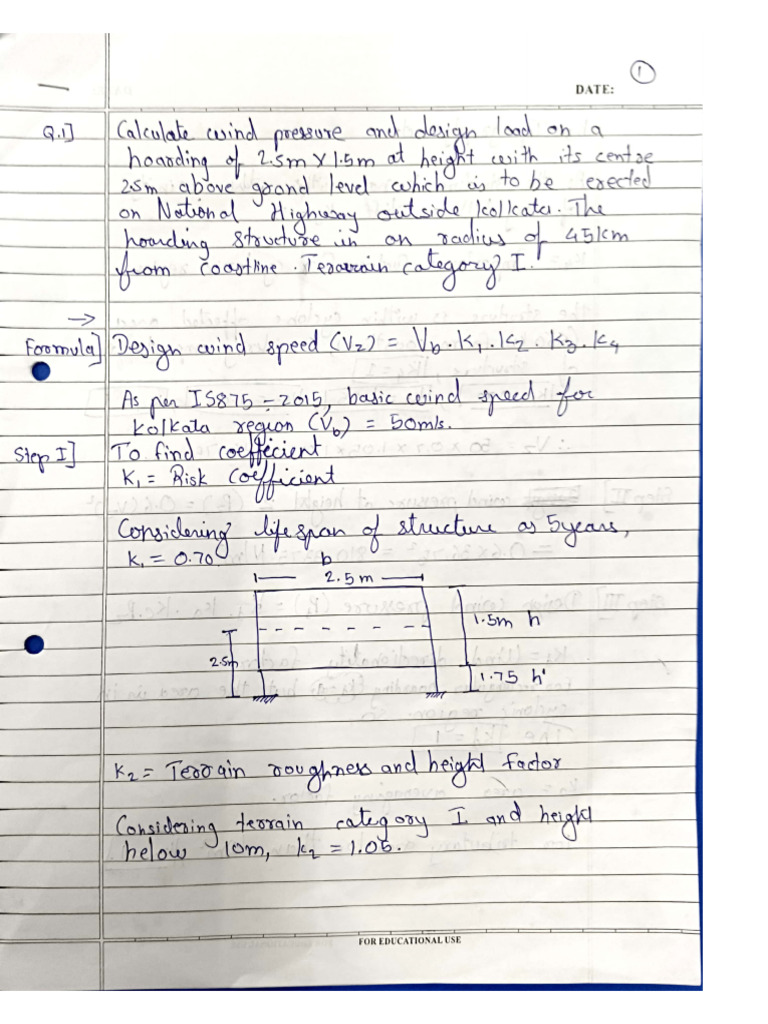 1
DATE:
Q.1] Calculate wind pressure and design load on a
hoarding of 2.5m x 1.5m at height with its centre
2.5m above grand level which is to be erected
on National Highway outside kolkata. The
hoarding structure in on radius of 45km
from coastline. Terarrain category I.
→
Foormula] Design wind speed (Vz) = Vb . K1 . K2 . K3 . K4
As per IS875 - 2015, basic wind speed for
kolkata region (Vb) = 50m/s.
Step I] To find coefficient
K1 = Risk coefficient
Considering life span of structure as 5 years,
K1 = 0.70
b
2.5 m
1.5m h
2.5m
1.75 h'
K2 = Terrain roughness and height factor
Considering terrain category I and height
below 10m, K2 = 1.05.
FOR EDUCATIONAL USE